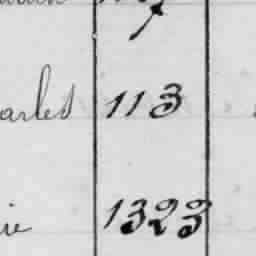 arles 113
ie 1323